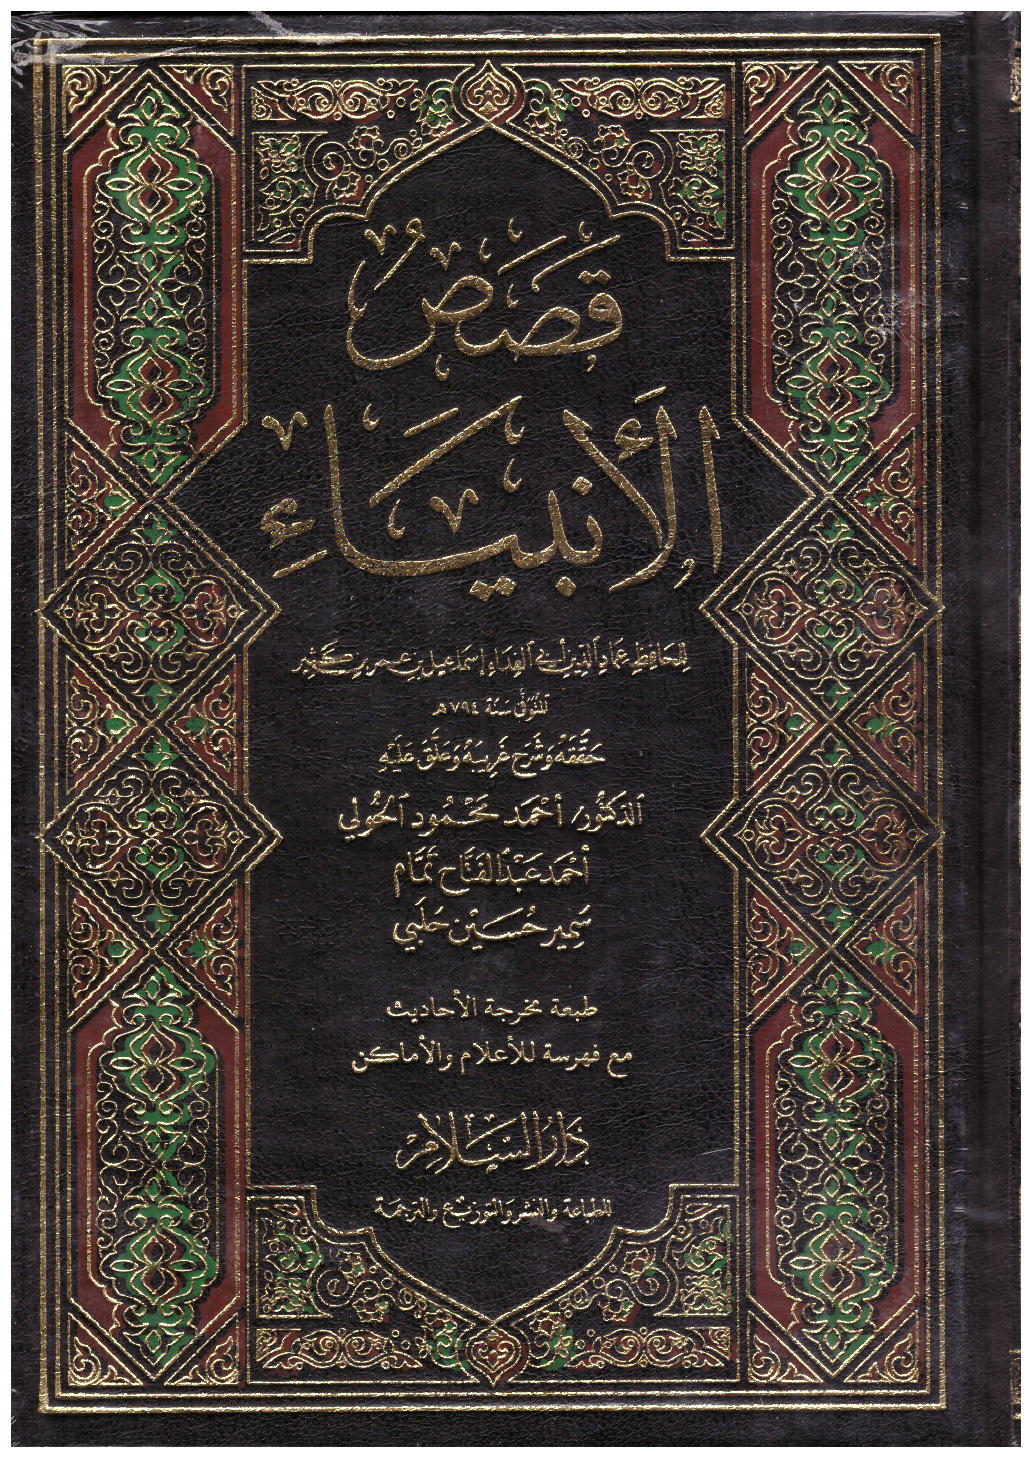 قَصَصُ
الأَنبيَاءِ
للحافظ عماد الدين أبي الفداء إسماعيل بن عمر بن كثير
المتوفى سنة ٧٩٤هـ
حَقَّقَهُ وَشَرَحَ غَرِيبَهُ وَعَلَّقَ عَلَيْهِ
الدكتور/ أحمد محمود الخولي
أحمد عبد الفتاح تمام
سمير حسين حلبي
طبعة مخرجة الأحاديث
مع فهرسة للأعلام والأماكن
دار السلام
للطباعة والنشر والتوزيع والترجمة